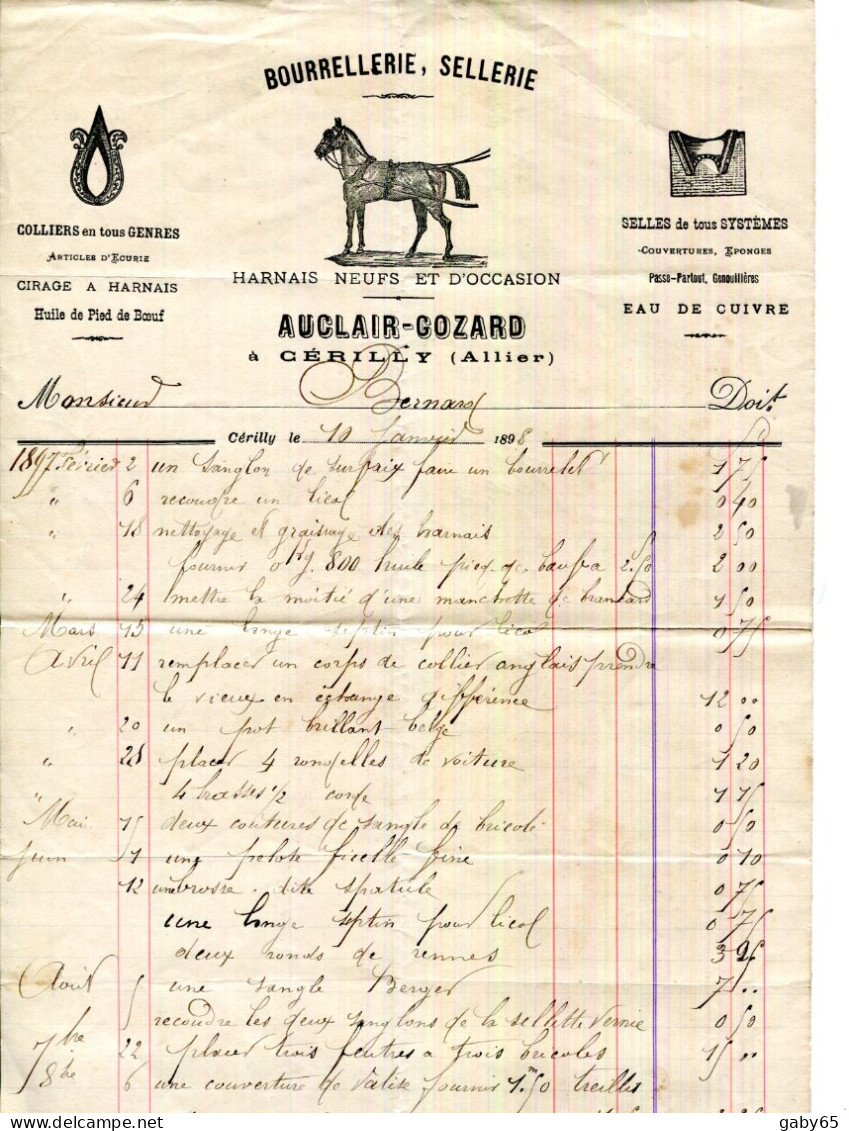 BOURRELLERIE, SELLERIE
COLLIERS en tous GENRES
ARTICLES D'ECURIE
CIRAGE A HARNAIS
Huile de Pied de Bœuf
HARNAIS NEUFS ET D'OCCASION
AUCLAIR-GOZARD
à CÉRILLY (Allier)
SELLES de tous SYSTÈMES
COUVERTURES, EPONGES
Passe-Partout, Genouillères
EAU DE CUIVRE
Monsieur Bernard Doit
Cérilly le 10 Janvier 1898
1897 Février 2 un sanglon de surfaix faire un bourrelet 1 75
" 6 recoudre un licol 0 40
" 18 nettoyage et graissage des harnais 2 50
fournir 0 kg. 800 huile pied de bœuf a 2.50 2 00
" 24 mettre la moitié d'une manchette de brancard 1 50
Mars 15 une longe septin pour licol 0 75
Avril 11 remplacer un corps de collier anglais prendre
le vieux en échange différence 12 ..
" 20 un pot brillant belge 0 50
" 28 placer 4 rondelles de voiture 1 20
" 4 brasses 1/2 corde 1 15
Mai 15 deux coutures de sangle de bricole 0 50
Juin 1 une pelote ficelle fine 0 10
12 une brosse dite spatule 0 75
une longe septin pour licol 0 75
deux ronds de rennes 3 25
Août 5 une sangle Berger 7 ..
5 recoudre les deux sanglons de la sellette vernie 0 50
7bre 22 placer trois feutres a trois bricoles 15 ..
8bre 6 une couverture de valise fournir 1m.50 treillis
gaby65